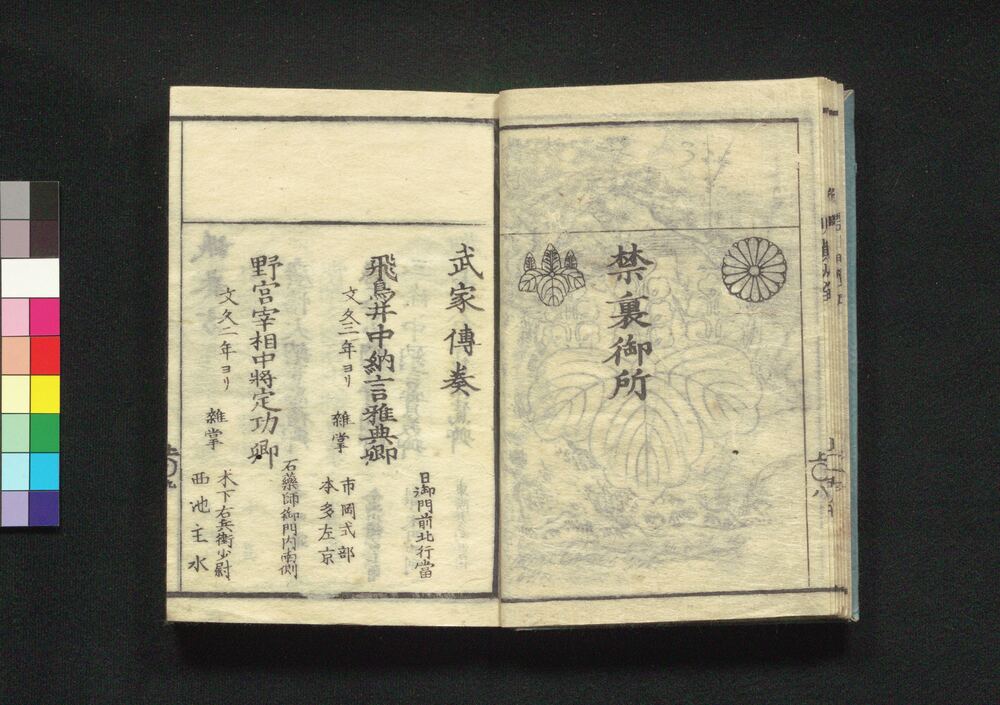 禁裏御所
武家傳奏
日御門前北行當
飛鳥井中納言雅典卿
文久三年ヨリ
雑掌
市岡式部
本多左京
石藥師御門内南側
野宮宰相中將定功卿
文久二年ヨリ
雑掌
木下右兵衛少尉
西池主水